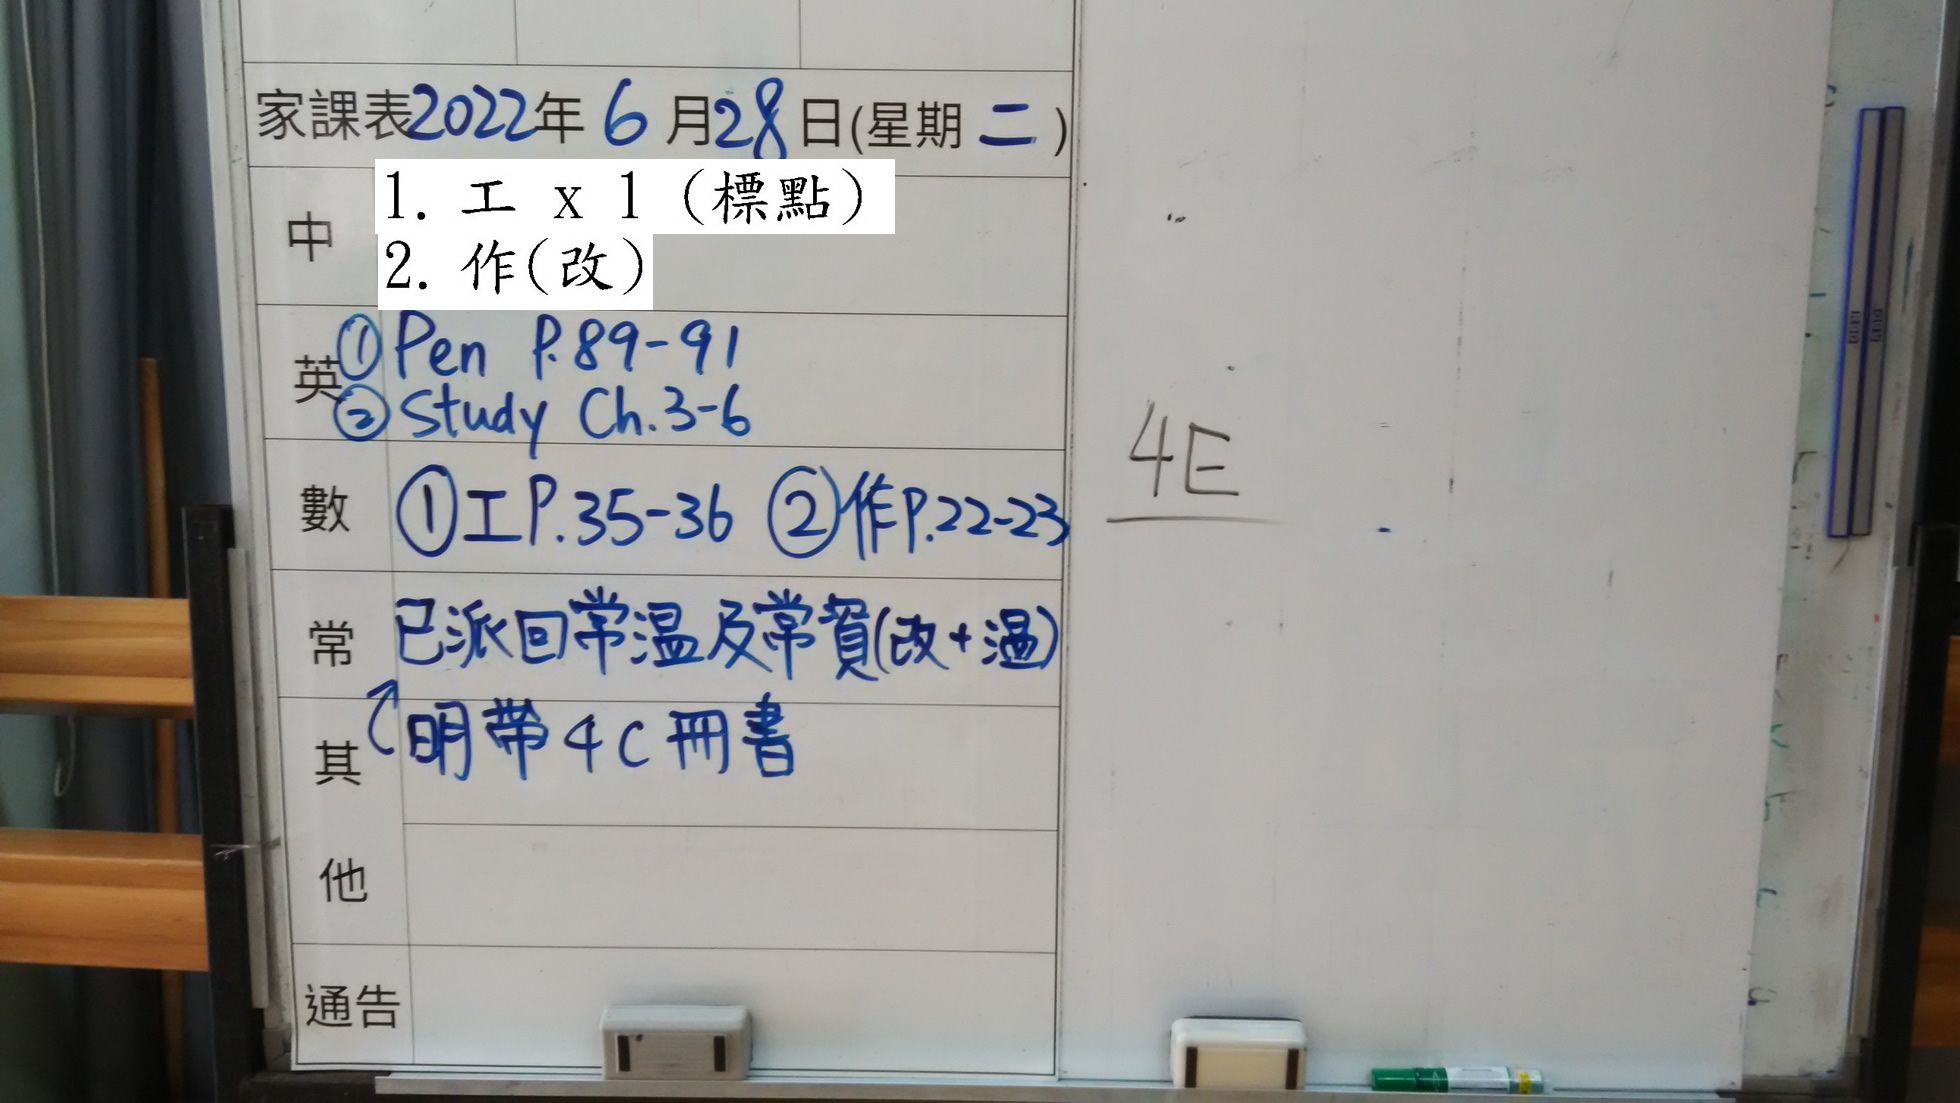 家課表2022年 6 月28日(星期 二 )
中
1. 工 x 1 (標點)
2. 作(改)
英
① Pen P.89-91
② Study Ch.3-6
數
① 工P.35-36 ② 作P.22-23
常
已派回常溫及常資(改+溫)
其他
明帶4C冊書
通告
4E